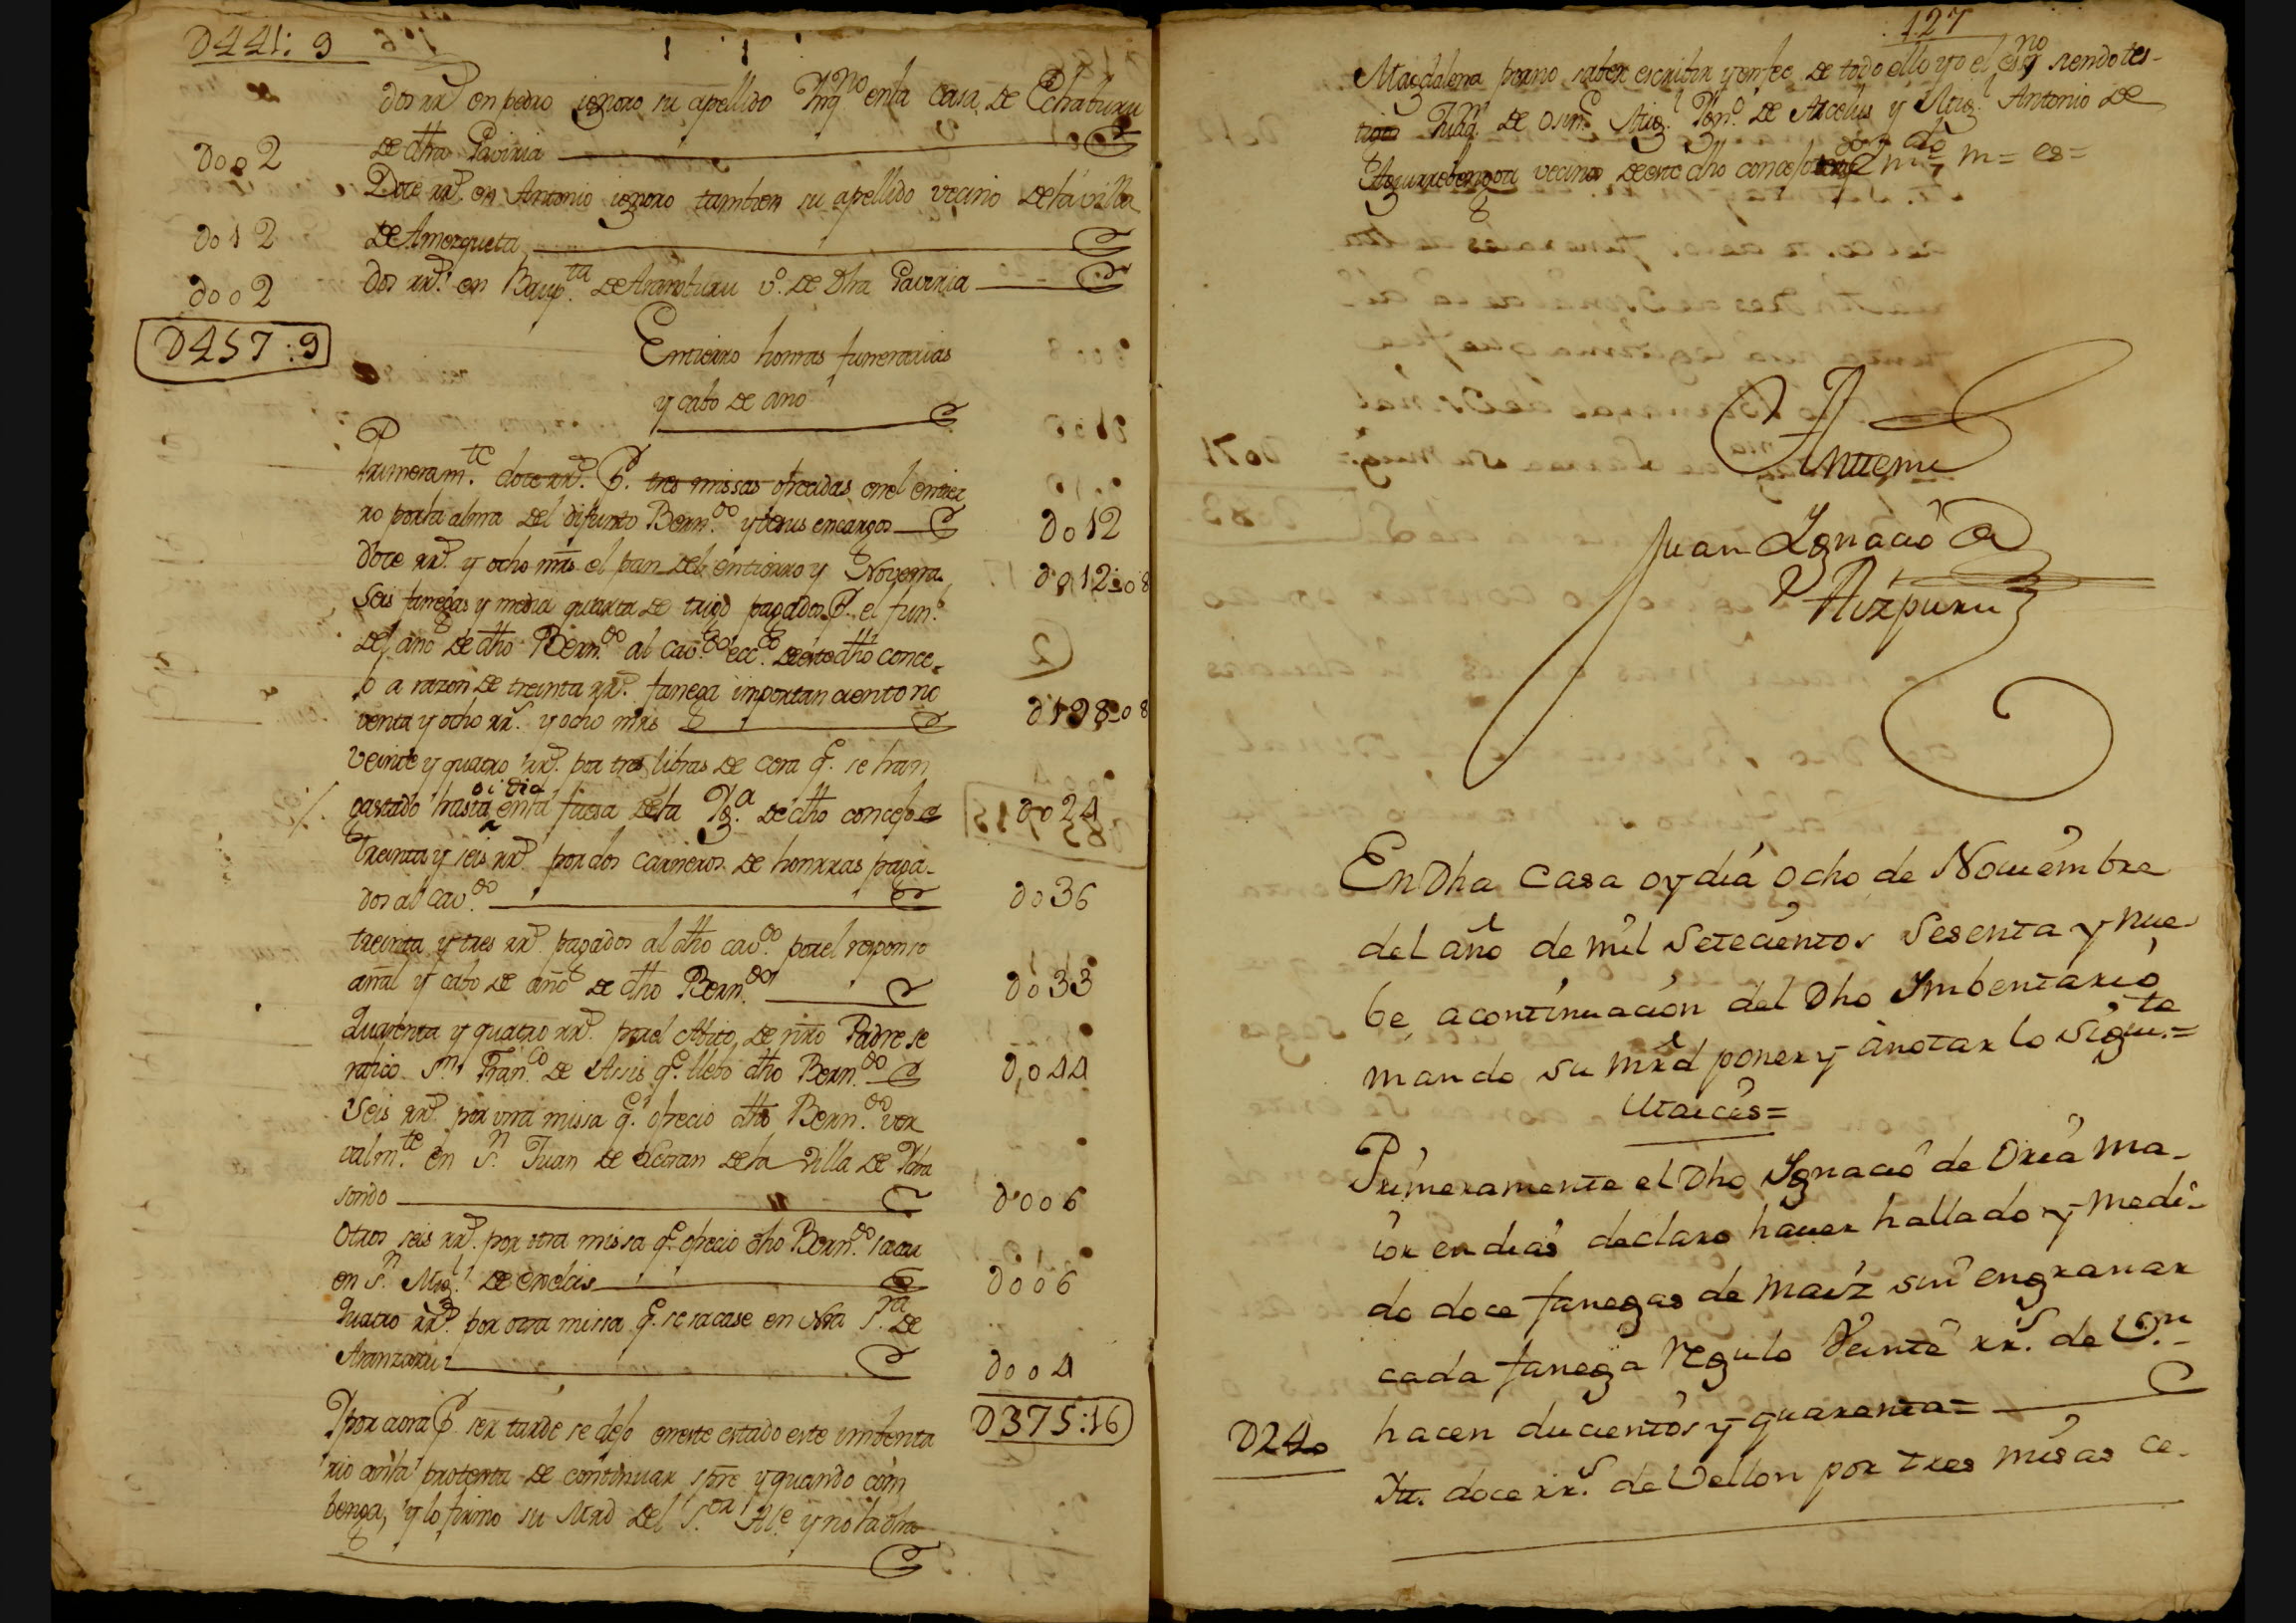 D441: 9
dos rr.s en pedro ignoro su apellido Inq.no en la Casa de Echaburu
D002 de dha Gaviria
Doce rr.s en Antonio ignoro tambien su apellido vecino de la villa
D012 de Amezqueta
D002 dos rr.s en Baup.ta de Aramburu v.o de Dha Gaviria
D457:9
Entierro honras funerarias
y cabo de año
Primeram.te doce rr.s P. tres missas ofrecidas en el entier
ro por la alma del difunto Bern.do y de sus encargos D012
Doce rr.s y ocho mrs el pan del entierro y Novena D012:08
Seis fanegas y media quarta de trigo pagados P. el fun.l
del año de dho Bern.do al Cav.do ecc.co de este dho conce-
jo a razon de treinta rr.s fanega importan ciento no
venta y ocho rr.s y ocho mrs D198:08
Veinte y quatro rr.s por tres libras de cera q.e se han
gastado hasta oi dia en la fuesa de la Ig.a de dho concejo D024
Treinta y seis rr.s por dos carneros de honrras paga-
dos al Cav.do D036
treinta y tres rr.s pagados al dho cav.do por el responso
añal y cabo de año de dho Bern.do D033
Quarenta y quatro rr.s por el Abito de nro Padre se
rafico S.n Fran.co de Assis q.e llebo dho Bern.do D044
Seis rr.s por una missa q.e ofrecio dho Bern.do ver
valm.te en S.n Juan de Leteran de la Villa de Ydia
sondo D006
Otros seis rr.s por otra missa q.e ofrecio dho Bern.do sacar
en S.n Mig.l de excelcis D006
Quatro rr.s por otra missa q.e se sacase en Nra S.ra de
Aranzazu D004
D375:16
Y por aora P. ser tarde se dejo en este estado este imbenta
rio con la protesta de continuar spre y quando com
benga, y lo firmo su Mrd del S.or Alc.e y no la dha
127
Magdalena por no saber escribir y en fee de todo ello yo el es.no siendo tes-
tigos Juan de Mig.l de Arcelus y Mig.l Antonio de
Aguirrebengoa vecinos de este dho concejo
Antemi
Juan Ignacio de
Aizpuru
En Dha Casa oy dia ocho de Nouiembre
del año de mil Setecientos Sesenta y nue
be a continuacion del Dho Imbentario
mando su mrd poner y anotar lo siguı.te=
Maices=
Primeramente el Dho Ignacio de Oria ma-
ior en dias declaro hauer hallado y medi-
do doce fanegas de maiz sin engranar
cada fanega regulo Veinte rr.s de V.n
D240 hacen ducientos y quarenta=
Itt. doce rr.s de Vellon por tres misas ce-